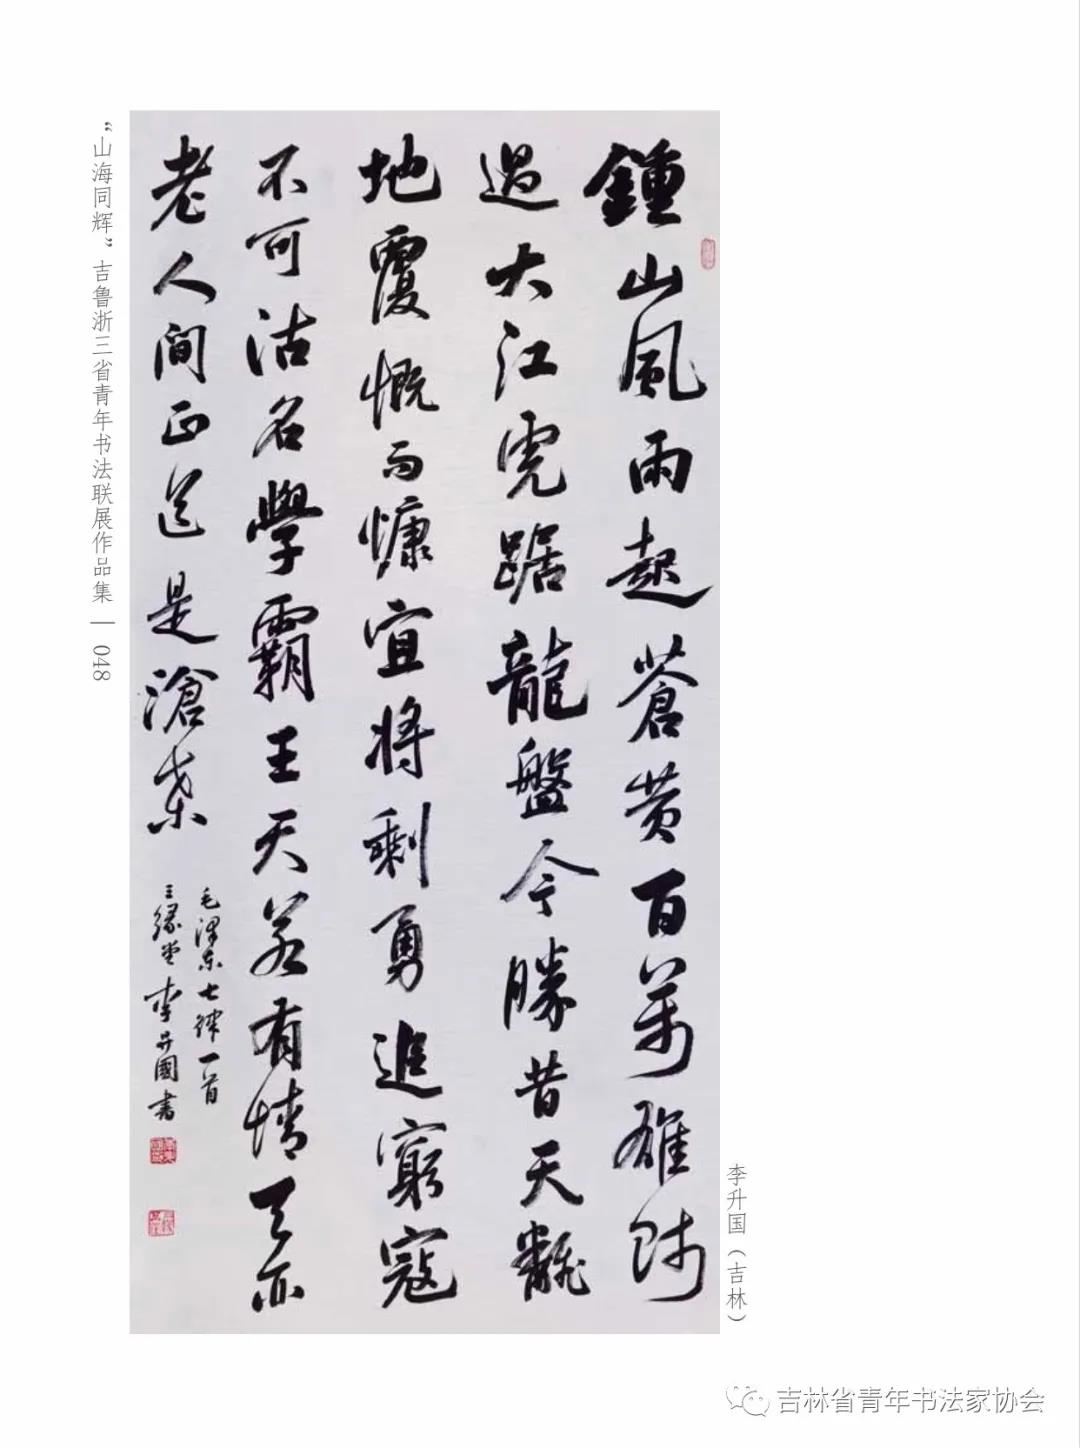 鍾山風雨起蒼黄百萬雄師
過大江虎踞龍盤今勝昔天翻
地覆慨而慷宜將剩勇追窮寇
不可沽名學霸王天若有情天亦
老人間正道是滄桒
毛澤东七律一首
三緣堂李升國書
“山海同辉”吉鲁浙三省青年书法联展作品集 | 048
李升国（吉林）
吉林省青年书法家协会